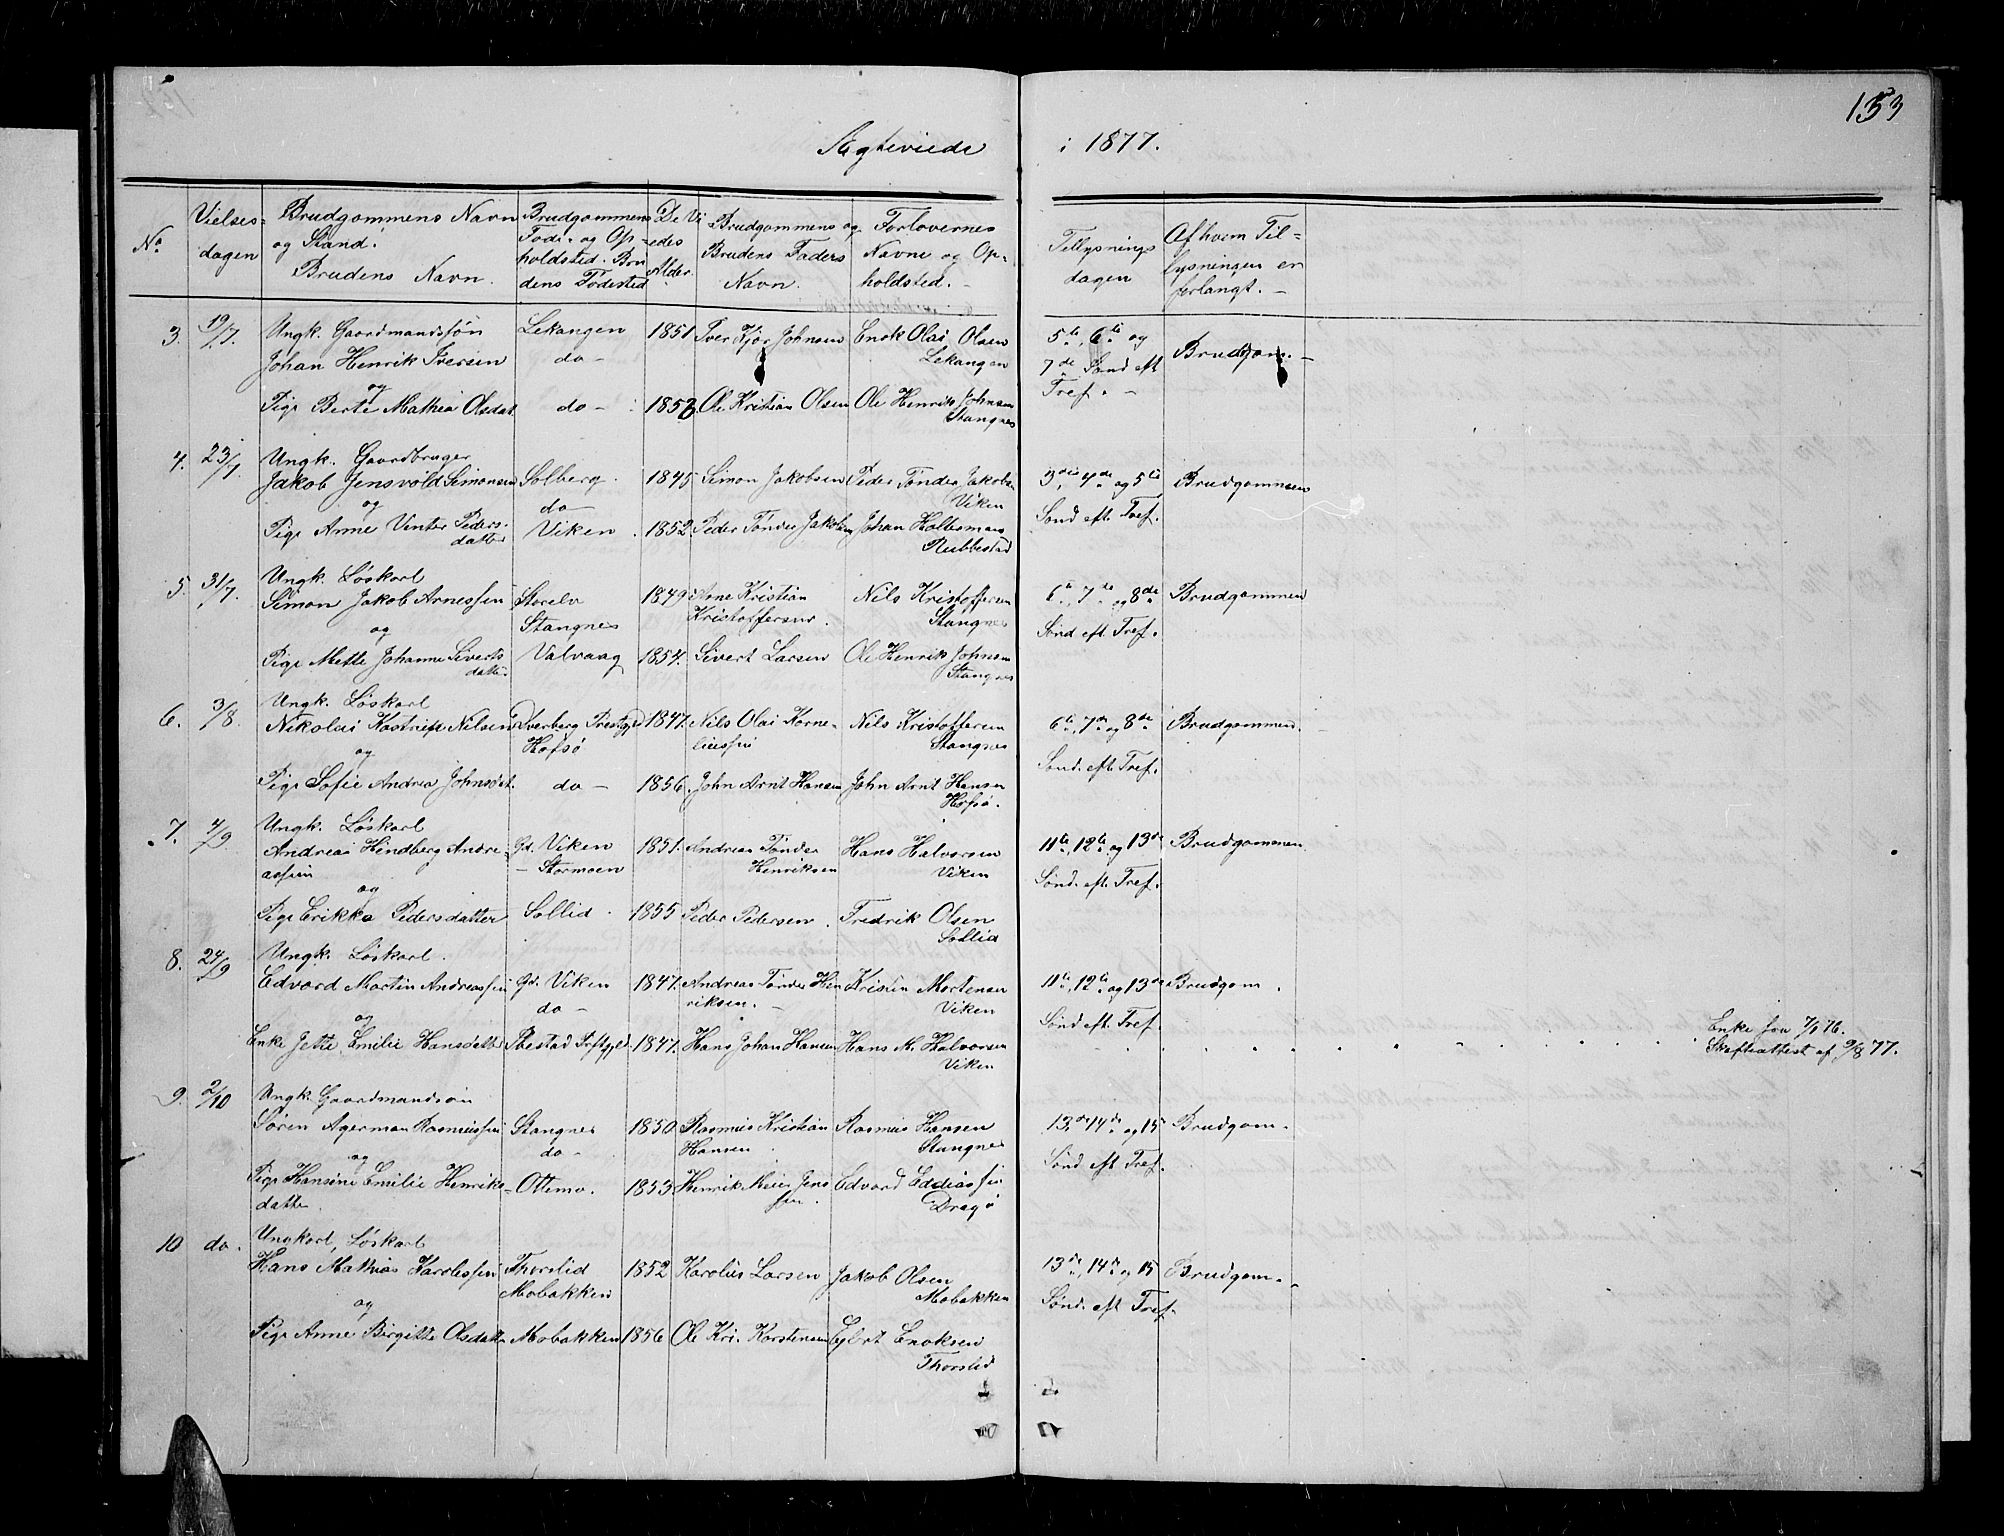 153
Ægteviede i 1877.
No
Vielses-
dagen
Brudgommens Navn
og Stand.
Brudens Navn.
Brudgommens
Føde- og Op-
holdsted. Bru
dens Fødested
De Vi
edes
Alder.
Brudgommens og
Brudens Faders
Navn.
Forlovernes
Navne og Op-
holdsted.
Tillysnings
dagen
Af hvem Til-
lysningen er
forlangt.
3. 19/7. Ungk. Gaardmandssøn
Johan Henrik Iversen
og
Pige Berte Mathea Olsdat
Lekangen
do
do
1851
1853
Iver Kjør Johnsen
Ole Kristian Olsen
Enok Olai Olsen
Lekangen
Ole Henrik Johnsen
Stangnes
5te, 6te og
7de Sønd eft
Tref.
Brudgom.
4. 23/7. Ungk. Gaardbruger
Jakob Jensvold Simonsen
og
Pige Anne Vinter Peders-
datter
Solberg.
do
Viken
1845
1852
Simon Jakobsen
Peder Tønder Jakobsen
Peder Tønder Jakobsen
Viken
Johan Holtermann
Rubbestad
3die, 4de og 5te
Sønd. eft. Tref.
Brudgommen
5. 31/7. Ungk. Løskarl
Simon Jakob Arnessen
og
Pige Mette Johanne Siverts
datter
Storelv
Stangnes
Valvaag
1849
1854.
Arne Kristian
Kristoffersen.
Sivert Larsen
Nils Kristoffersen
Stangnes
Ole Henrik Johnsen
Stangnes
6te, 7de og 8de
Sønd eft. Tref.
Brudgommen
6. 3/8. Ungk. Løskarl
Nikolai Nilsen
og
Pige Sofie Andrea Johnsdat.
Dverberg Prestgjd
Hofsø
do
1847.
1856.
Nils Olai Korne-
liussen
John Arnt Hansen
Nils Kristoffersen
Stangnes
John Arnt Hansen
Hofsø.
6te, 7de og 8de
Sønd. eft. Tref.
Brudgommen.
7. 4/9 Ungk. Løskarl
Andreas Hindberg Andre-
assen
og
Pige Erikka Pedersdatter
Gd. Viken
Stormoen
Sollid.
1851.
1855
Andreas Tønder
Henriksen
Peder Pedersen.
Hans Halvorsen
Viken
Fredrik Olsen
Sollid
11te, 12te og 13de
Sønd. eft. Tref.
Brudgommen
8. 24/9 Ungk. Løskarl.
Edvard Martin Andreassen
og
Enke Jette Emilie Hansdatter
Gd. Viken
do
Ibestad Prstgjld.
1847.
1847.
Andreas Tønder Hen
riksen.
Hans Johan Hansen
Kristen Mortensen
Viken
Hans M. Halvorsen
Viken
11te, 12te og 13de
Sønd eft. Tref.
Brudgom.
Enke fra 7/1 76.
Skifteattest af 9/8 77.
9. 2/10 Ungk. Gaardmandssøn
Søren Agerman Rasmussen
og
Pige Hansine Emilie Henriks-
datter.
Stangnes
do
Ottemo.
1850
1853
Rasmus Kristian
Hansen.
Henrik Meier Jens
sen
Rasmus Hansen
Stangnes
Edvard Eddiassen
Dragø
13de, 14de og 15
Sønd. eft Tref.
Brudgom.
10 do. Ungkarl, Løskarl
Hans Mathias Karolessen
og
Pige Anne Birgitte Olsdatter
Thorslid
Mobakken
Mobakken
1852
1856
Karolius Larsen
Ole Kri. Karstensen
Jakob Olsen
Mobakken
Ejlert Enoksen
Thorslid
13de, 14de og 15
Sønd. eft Tref.
Brudgom.